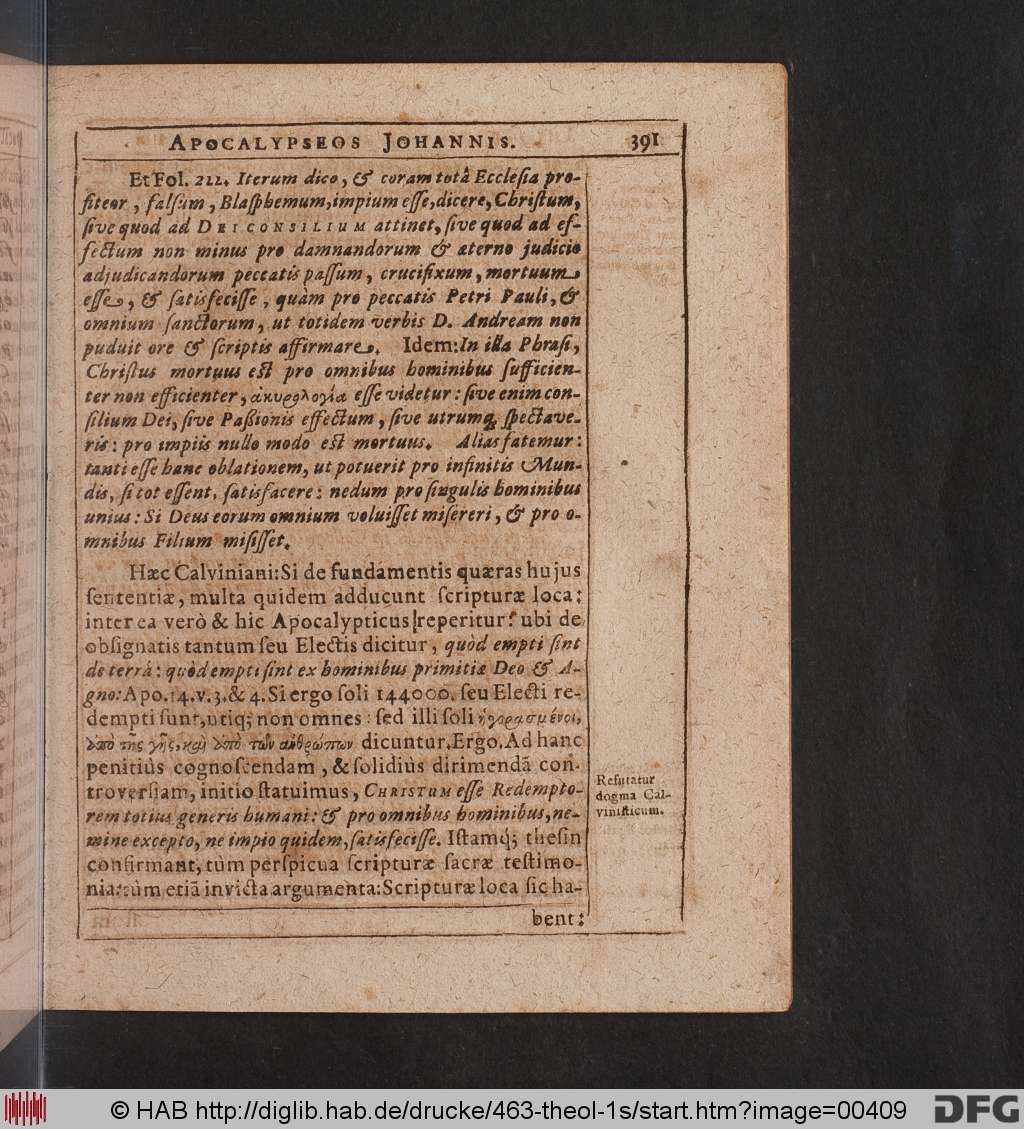 APOCALYPSEOS JOHANNIS. 391
Et Fol. 211. Iterum dico, & coram totâ Ecclesia pro-
fiteor, falsum, Blasphemum, impium esse, dicere, Christum,
sive quod ad DEI CONSILIUM attinet, sive quod ad ef-
fectum non minus pro damnandorum & æterno judicio
adjudicandorum peccatis passum, crucifixum, mortuum
esse, & satisfecisse, quàm pro peccatis Petri Pauli, &
omnium sanctorum, ut totidem verbis D. Andream non
puduit ore & scriptis affirmare. Idem: In illa Phrasi,
Christus mortuus est pro omnibus hominibus sufficien-
ter non efficienter, ἀκυρολογία esse videtur: sive enim con-
silium Dei, sive Passionis effectum, sive utrumq; spectave-
ris: pro impiis nullo modo est mortuus. Alias fatemur:
tanti esse hanc oblationem, ut potuerit pro infinitis Mun-
dis, si tot essent, satisfacere: nedum pro singulis hominibus
unius: Si Deus eorum omnium voluisset misereri, & pro o-
mnibus Filium misisset.
Hæc Calviniani: Si de fundamentis quæras hujus
sententiæ, multa quidem adducunt scripturæ loca:
inter ea verò & hic Apocalypticus reperitur: ubi de
obsignatis tantum seu Electis dicitur, quòd empti sint
de terrá: quòd empti sint ex hominibus primitiæ Deo & A-
gno: Apo. 14. v. 3. & 4. Si ergo soli 144000. seu Electi re-
dempti sunt, utiq; non omnes: sed illi soli ἠγορασμένοι,
ἀπὸ τῆς γῆς, καὶ ἀπὸ τῶν ἀνθρώπων dicuntur. Ergo. Ad hanc
penitiùs cognoscendam, & solidiùs dirimendã con-
troversiam, initio statuimus, CHRISTUM esse Redempto-
rem totius generis humani: & pro omnibus hominibus, ne-
mine excepto, ne impio quidem, satisfecisse. Istamq́; thesin
confirmant, tùm perspicua scripturæ sacræ testimo-
nia: tùm etiã invicta argumenta: Scripturæ loca sic ha-
bent:
Refutatur
dogma Cal-
vinisticum.
© HAB http://diglib.hab.de/drucke/463-theol-1s/start.htm?image=00409 DFG